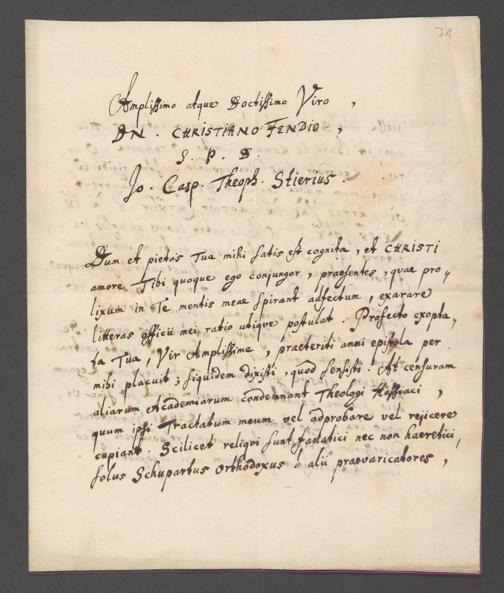 71
Amplissimo atque Doctissimo Viro,
DN. CHRISTIANO FENDIO,
S. P. D.
Jo. Casp. Theoph. Stierius.
Dum et pietas Tua mihi satis est cognita, et CHRISTI
amore Tibi quoque ego conjungor, praesentes, quae pro-
lixum in Te mentis meae spirant adfectum, exarare
litteras officii mei ratio utique postulat. Profecto exopta-
ta Tua, Vir Amplissime, praeteriti anni epistola per
mihi placuit; siquidem dixisti, quod sensisti. At censuram
aliarum Academiarum condemnant Theologi Hassiaci,
quum ipsi Tractatum meum vel adprobare vel rejicere
cupiant. Scilicet reliqvi sunt fanatici nec non haeretici,
solus Schupartus Orthodoxus alii praevaricatores,